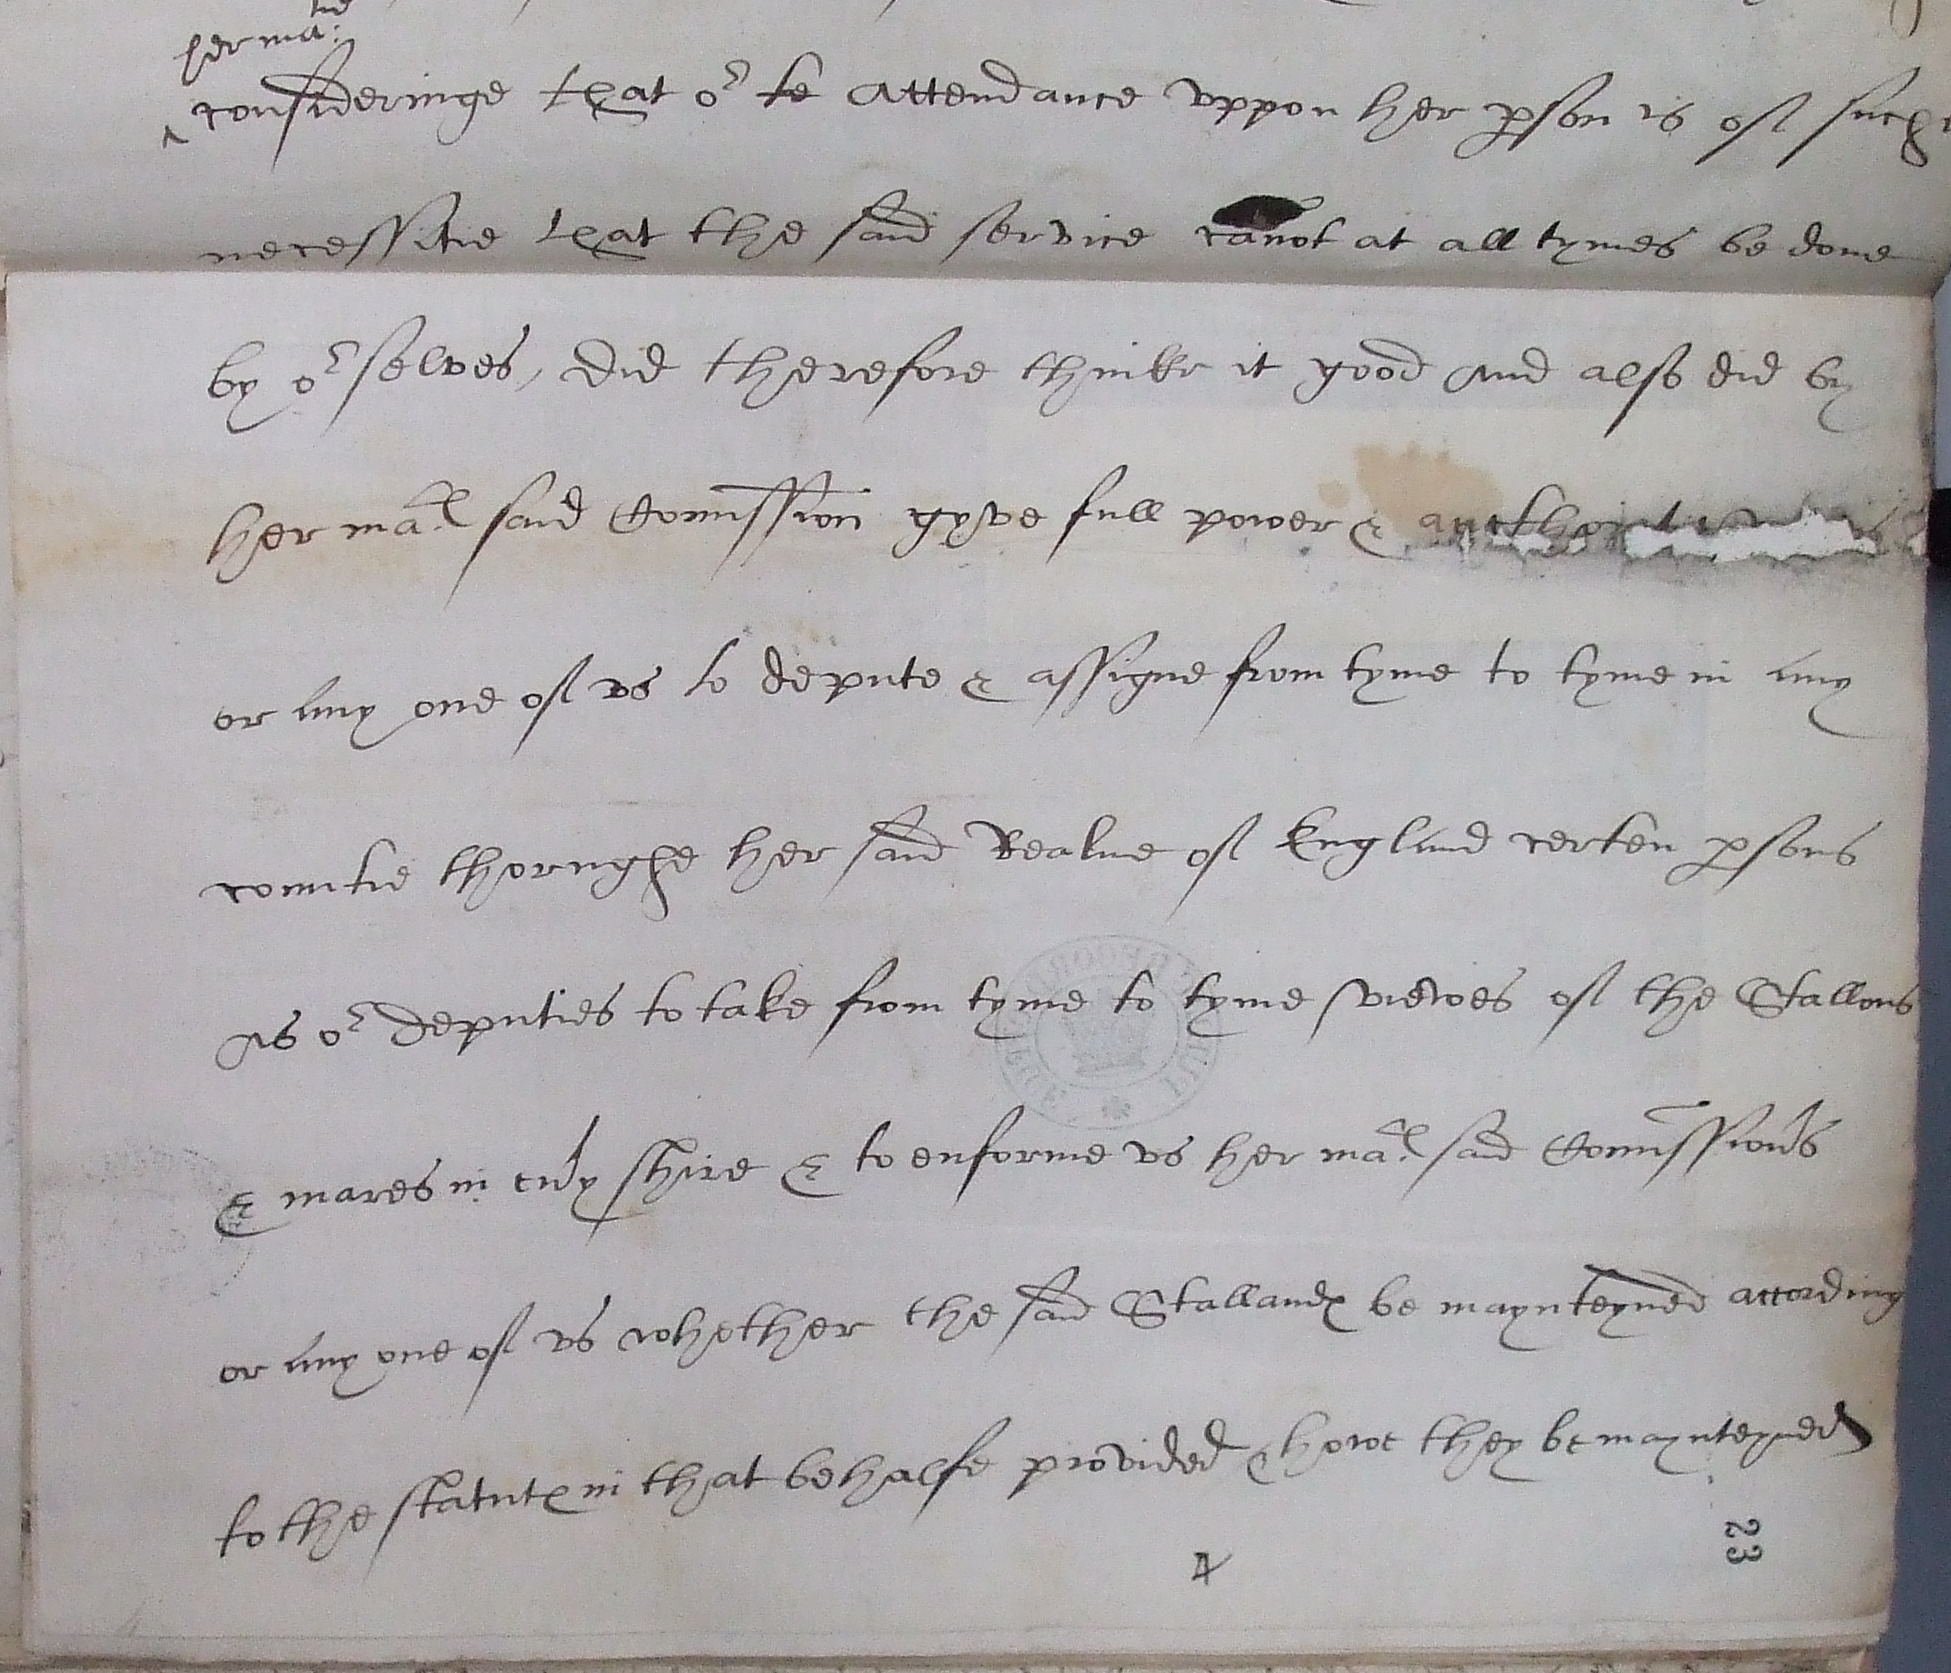 her ma:tie
^ consideringe that or te Attendance vppon her pson is of suche
necessitie that the said service canot at all tymes be done
by or selves, did therefore thinke it good And also did by
her mats said Comission gyve full power & aucthoritie vs
or Any one of vs to depute & assigne from tyme to tyme in Any
countie thorughe her said Realme of England certen psons
As or deputies to take from tyme to tyme viewes of the Stallons
& mares in euy shire & to enforme vs her mats said Comissions
or Any one of vs whether the said Stallands be maynteyned according
to the statutes in that behalfe provided & howe they be maynteyned
4
23